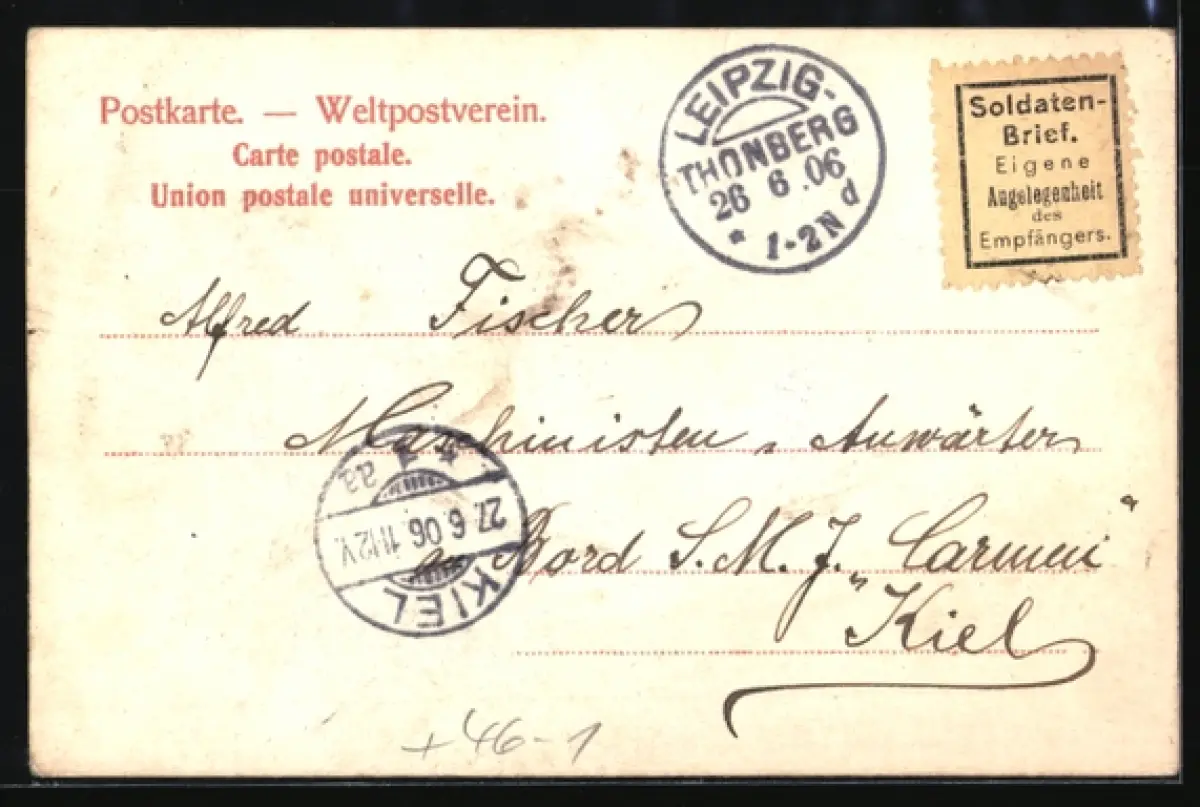 Postkarte. — Weltpostverein.
Carte postale.
Union postale universelle.
LEIPZIG-
THONBERG
26 6.06
* 1-2N d
Soldaten-
Brief.
Eigene
Angelegenheit
des
Empfängers.
Alfred Fischer
Maschinisten-Anwärter
an Bord S.M.J. „Carmen“
Kiel
KIEL
27.6.06.11-12V.
* a a
+46-1